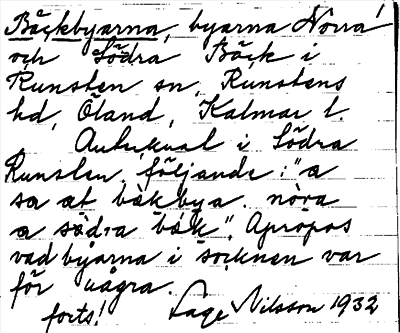 Bäckbyarna, byarna Norra
och Södra Bäck i
Runsten sn, Runstens
hd, Öland, Kalmar l.
i Södra
Runsten, följande: "a
sa at båkbya. nöra
a södra båk". Apropos
vad byarna i socknen var
för några.
forts! Sage Nilsson 1932